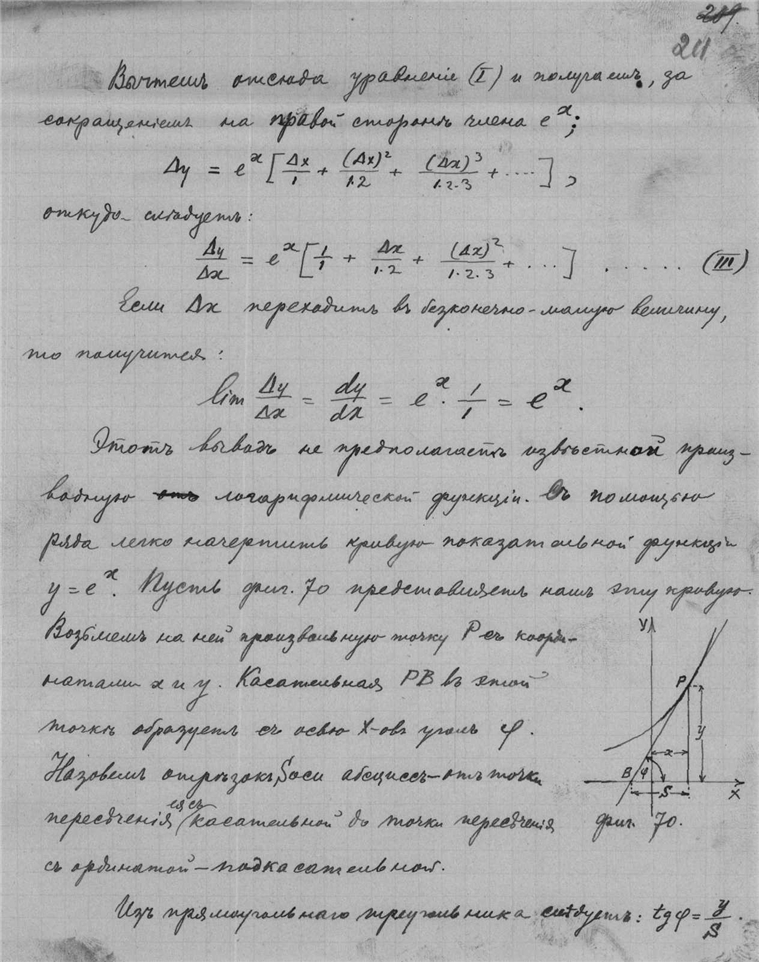 209.
211
Вычтемъ отсюда уравненіе (I) и получаемъ, за
сокращеніемъ на правой сторонѣ члена e^x;
Δy = e^x [Δx/1 + (Δx)^2/1.2 + (Δx)^3/1.2.3 + ....],
откуда слѣдуетъ:
Δy/Δx = e^x [1/1 + Δx/1.2 + (Δx)^2/1.2.3 + ...] ...... (III)
Если Δx переходитъ въ безконечно-малую величину,
то получится:
lim Δy/Δx = dy/dx = e^x. 1/1 = e^x.
Этотъ выводъ не предполагаетъ извѣстной произ-
водную отъ логарифмической функціи. Съ помощью
ряда легко начертить кривую показательной функціи
y = e^x. Пусть фиг. 70 представляетъ намъ эту кривую.
Возьмемъ на ней произвольную точку P съ коорди-
натами x и y. Касательная PB въ этой
точкѣ образуетъ съ осью X-овъ уголъ φ.
Назовемъ отрѣзокъ S оси абсциссъ – отъ точки
пересѣченія ея съ касательной до точки пересѣченія
съ ординатой – подкасательной.
Изъ прямоугольнаго треугольника слѣдуетъ: tg φ = y/S.
У
P
y
x
B φ
S
X
фиг. 70.